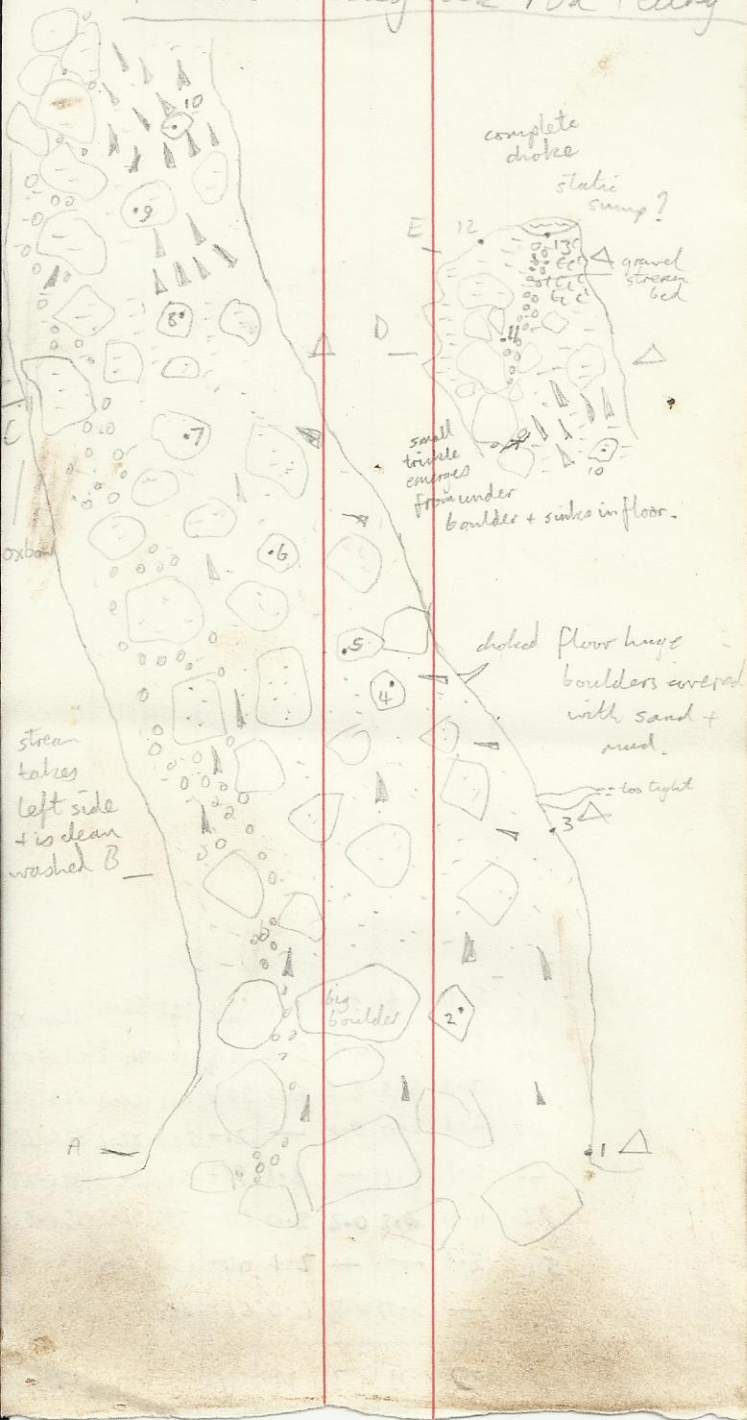 10
complete
choke
static
sump?
E
12
9
13
gravel
stream
bed
8
D
11
C
7
small
trickle
emerges
from under
boulder + sinks in floor.
10
oxbow
6
5
choked floor huge
boulders covered
with sand +
mud.
4
stream
takes
left side
+ is clean
washed B
too tight
3
big
boulder
2
A
1